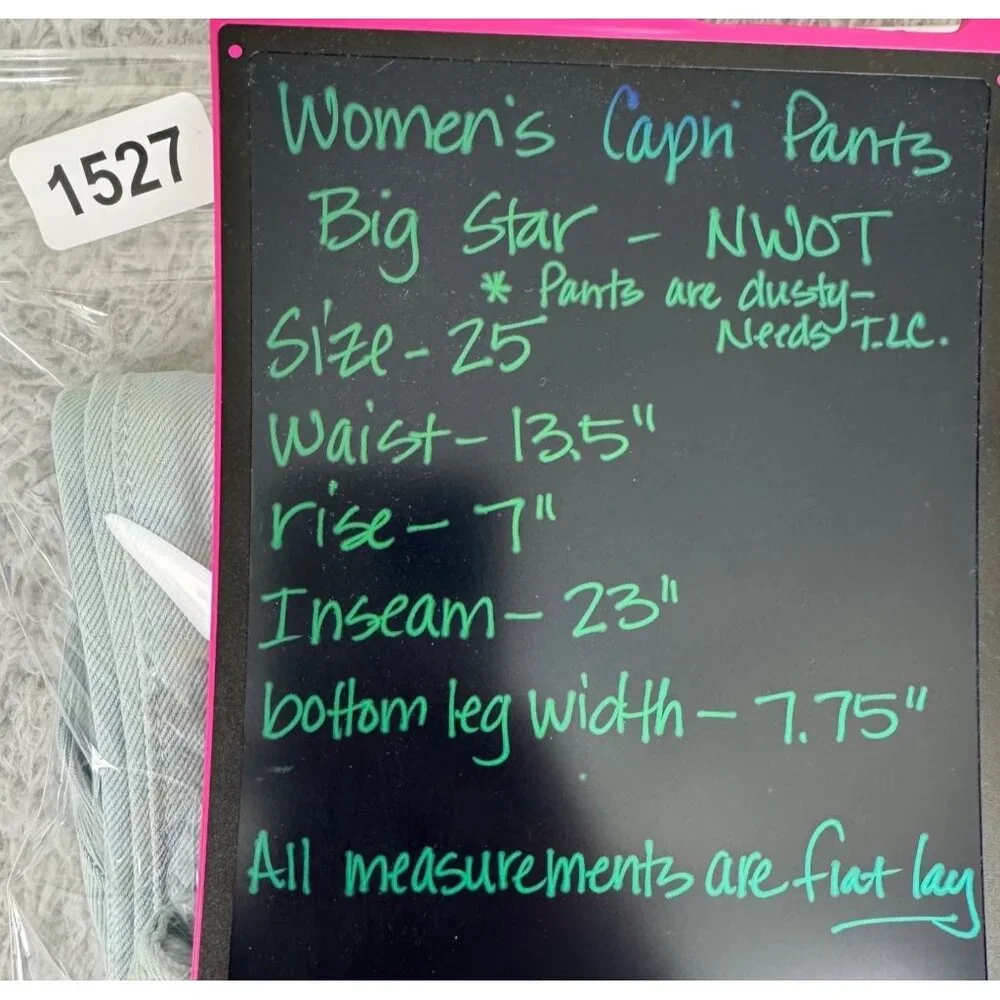 1527
Women's Capri Pants
Big Star - NWOT
* Pants are dusty-
Needs T.L.C.
Size - 25
Waist - 13.5"
rise - 7"
Inseam - 23"
bottom leg width - 7.75"
All measurements are flat lay